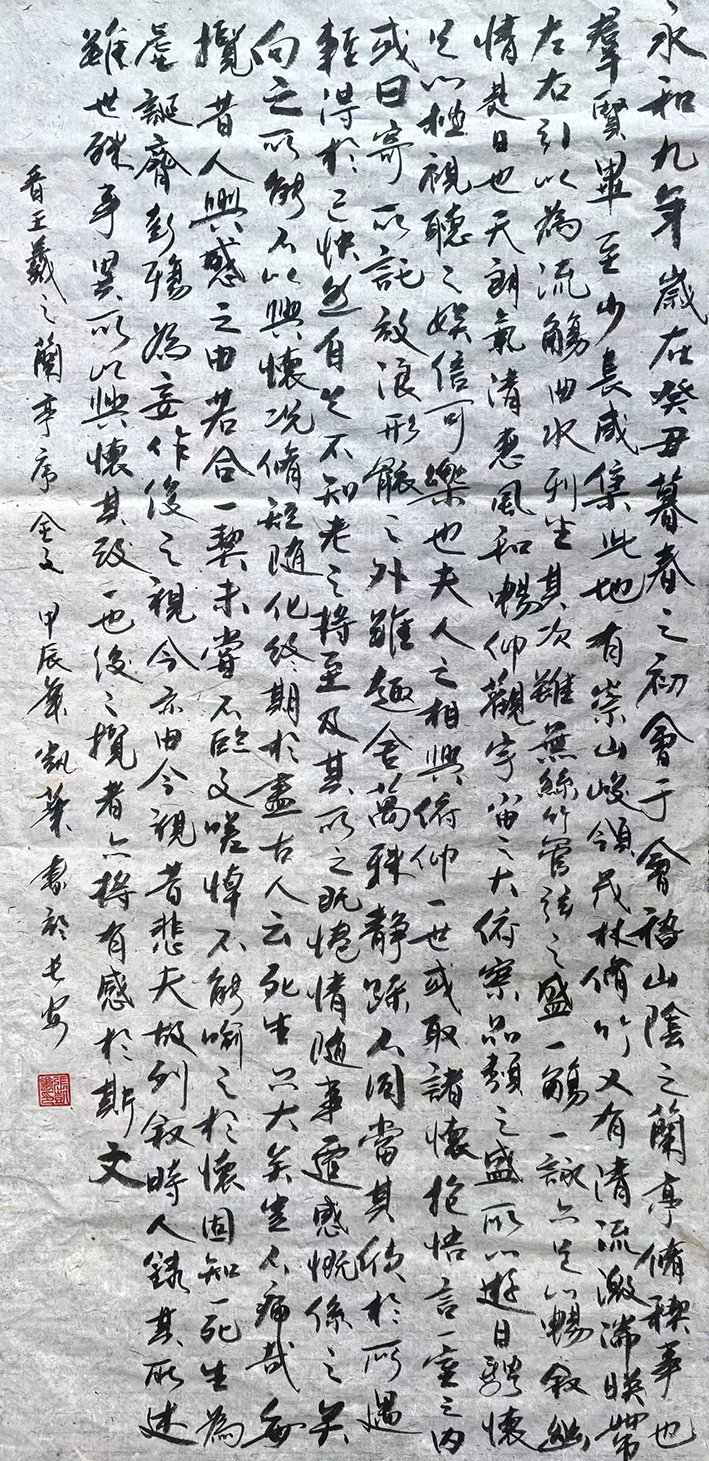 永和九年歲在癸丑暮春之初會于會稽山陰之蘭亭脩稧事也
羣賢畢至少長咸集此地有崇山峻領茂林脩竹又有清流激湍暎帶
左右引以為流觴曲水列坐其次雖無絲竹管弦之盛一觴一詠亦足以暢敘幽
情是日也天朗氣清惠風和暢仰觀宇宙之大俯察品類之盛所以遊目騁懷
足以極視聽之娛信可樂也夫人之相與俯仰一世或取諸懷抱悟言一室之內
或因寄所託放浪形骸之外雖趣舍萬殊靜躁不同當其欣於所遇
暫得於己快然自足不知老之將至及其所之既惓情隨事遷感慨係之矣
向之所能不以興懷況脩短隨化終期於盡古人云死生亦大矣豈不痛哉每
攬昔人興感之由若合一契未嘗不臨文嗟悼不能喻之於懷固知一死生為
虛誕齊彭殤為妄作後之視今亦由今視昔悲夫故列敘時人錄其所述
雖世殊事異所以興懷其致一也後之攬者亦將有感於斯文
晉王羲之蘭亭序全文 甲辰年凱華書於長安